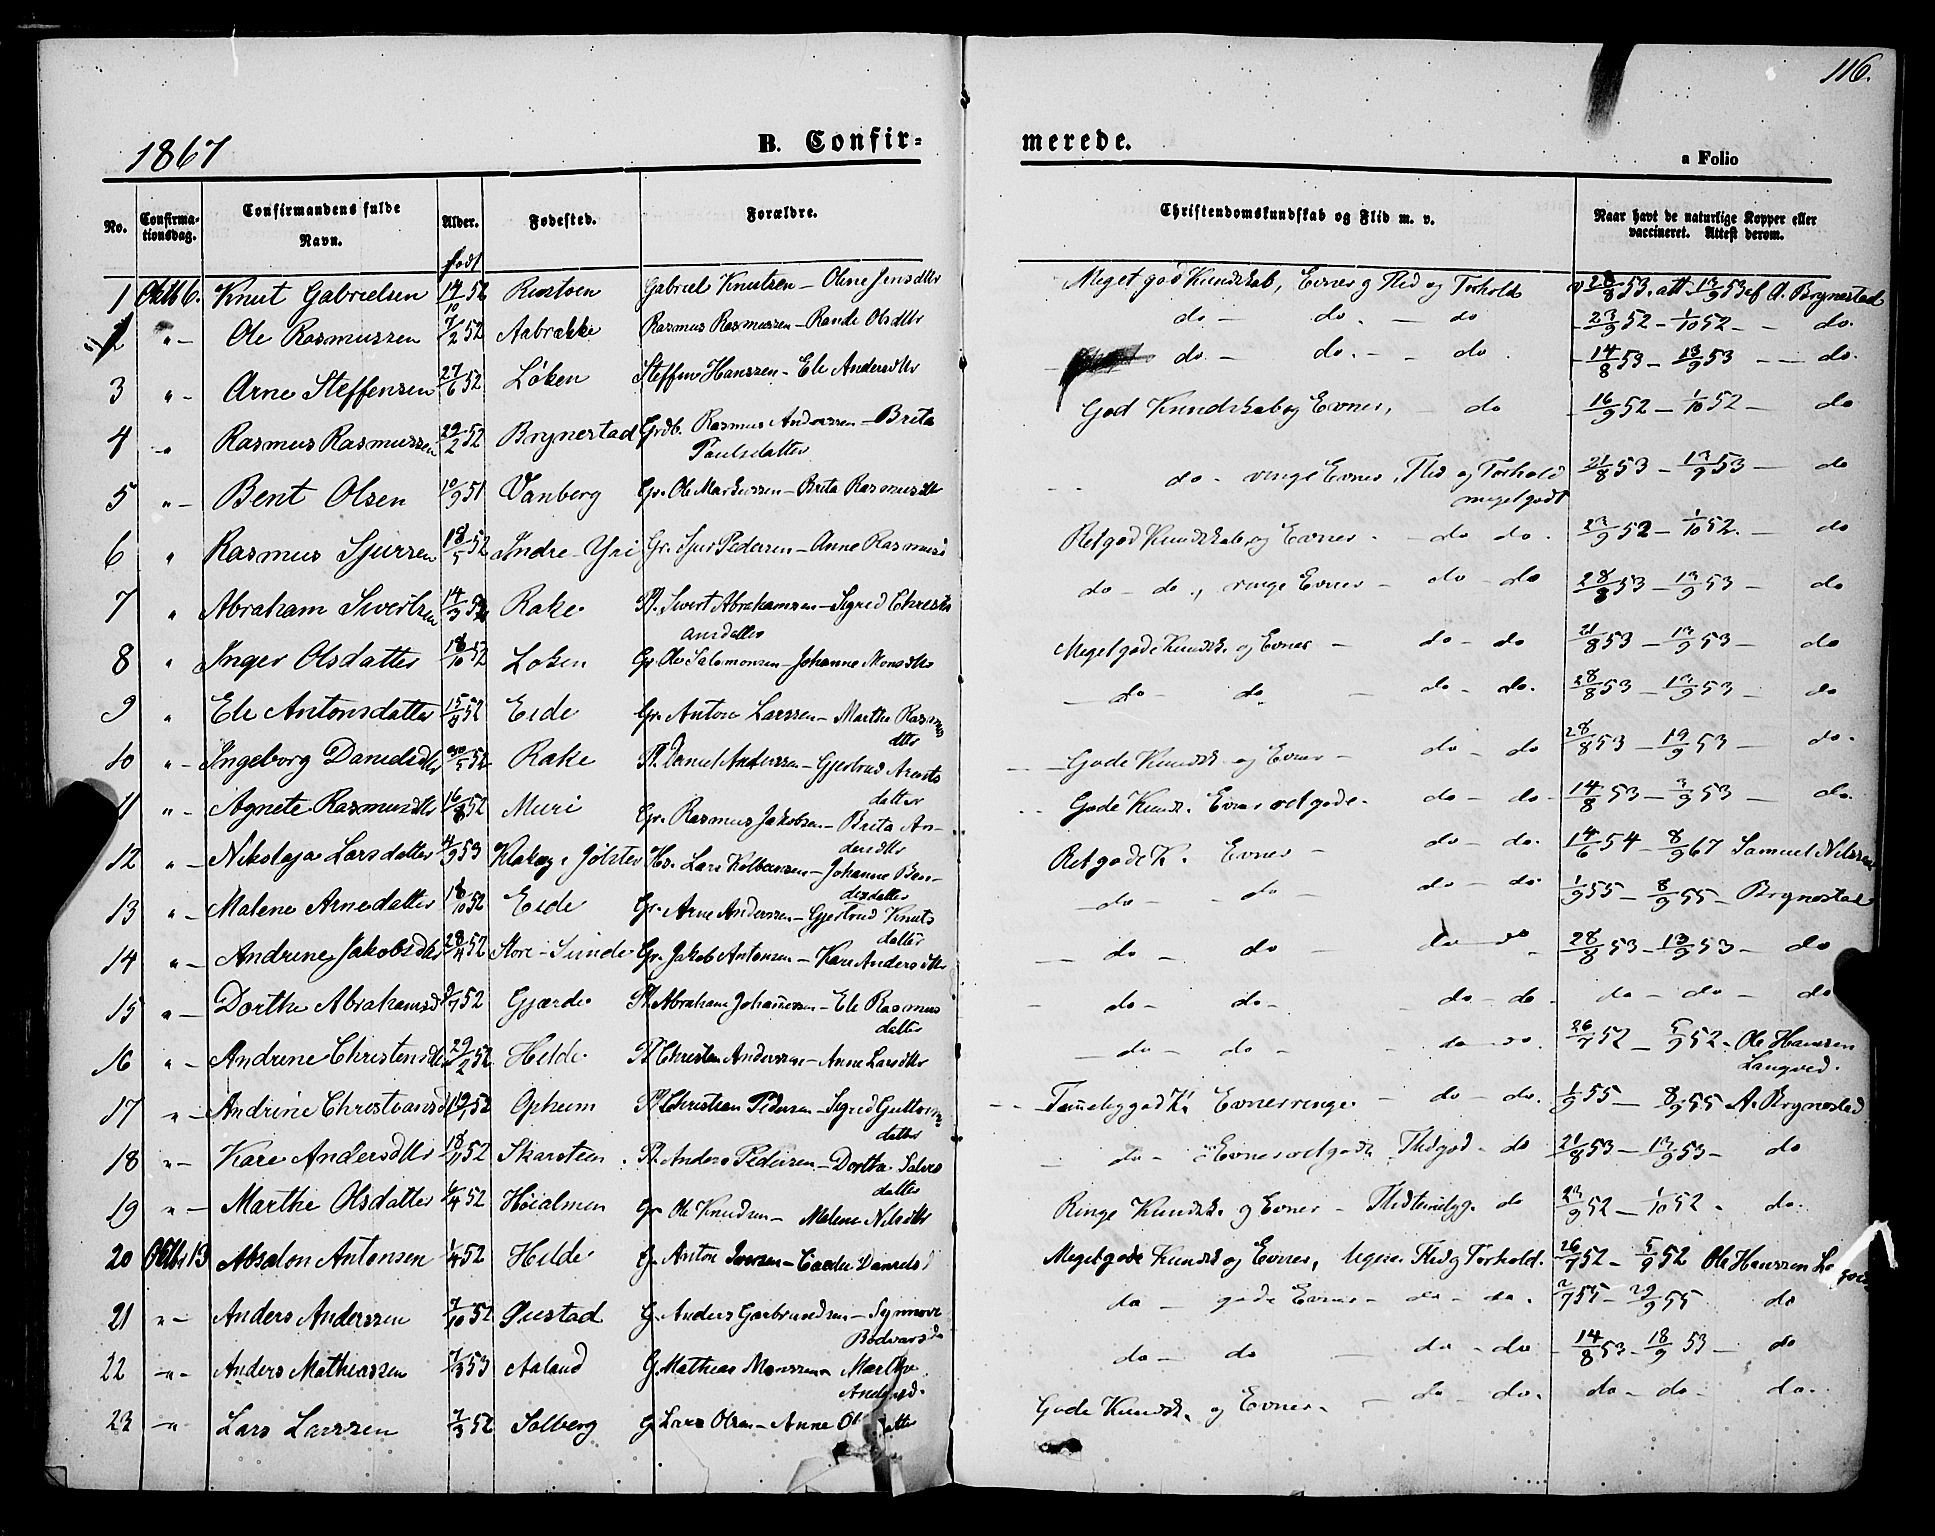 1867 B. Confir- merede. 116.
a Folio
No. Confirma-tionsdag. Confirmandens fulde Navn. Alder. Fødested. Forældre. Christendomskundskab og Flid m. v. Naar havt de naturlige Kopper eller vaccineret. Attest derom.
født
1 Octb 6. Knut Gabrielsen 14/10 52 Rustøen Gabriel Knutsen – Oline Jensdtr Meget god Kundskab, Evner g Flid og Forhold 28/8 53. att. 13/9 53 af A. Brynestad
2 " – Ole Rasmussen 7/2 52 Aabrække Rasmus Rasmussen – Rande Olsdtr do – do. – do 23/9 52 – 1/10 52 – – do.
3 " – Arne Steffensen 27/6 52 Løken Steffen Hanssen – Ele Andersdtr do – do. – – do. 14/8 53 – 13/9 53 – – do.
4 " Rasmus Rasmussen 29/2 52 Brynestad Grdb. Rasmus Anderssen – Brita God Kundskab og Evner, – do 16/9 52 – 1/10 52 – do
Paulsdatter
5 " – Bent Olsen 10/9 51 Vanberg Gr. Ole Markussen – Brita Rasmusdtr do – ringe Evner, Flid og Forhold 21/8 53 – 13/9 53 – do
meget godt
6 " Rasmus Sjurssen 18/5 52 Indre-Yri Gr. Sjur Pedersen – Anne Rasmusd Retgod Kundskab og Evner – do do. 23/9 52 – 1/10 52. – do
7 " Abraham Sivertsen 14/3 52 Rake Pl. Sivert Abrahamsen – Sigrid Christi do – do., ringe Evner – do – do 28/8 53 – 13/9 53 – do
ansdatter
8 " Inger Olsdatter 18/10 52 Løken Gr. Ole Salomonsen – Johanne Monsdtr Meget gode Kundsk. og Evner – do – do 21/8 53 – 13/9 53 – do
9 " Ele Antonsdatter 15/8 52 Eide Gr. Anton Larssen – Marthe Rasmus – do – do – do – do. 28/8 53 – 13/9 53 – do
dtr
10 " – Ingeborg Danielsdtr 30/5 52 Rake Pl. Daniel Anderssen – Gjertrud Arents Gode Kundsk. og Evner – do – do 28/8 53 – 19/9 53 – do.
datter
11 " – Agnete Rasmusdtr 16/8 52 Muri Gr. Rasmus Jakobsen – Brita An- Gode Kunds. Evner retgode. do – do – 14/8 53 – 3/9 53 – do.
dersdtr
12 " – Nikolaja Larsdatter 4/9 53 Klakeg i Jølster Hr. Lars Kolbensen – Johanne Ben- Retgode K. Evner – do – do. 14/6 54 – 8/9 67 Samuel Nilssen
dixdatter
13 " – Malene Arnedatter 18/10 52 Eide Gr. Arne Anderssen – Gjertrud Knuts – do – – do – do – do 1/9 55 – 8/9 55 – Brynestad
datter
14 " – Andrine Jakobsdtr 28/4 52 Store-Sunde Gr. Jakob Antonsen – Kari Andersdtr – do – do – do – do – 28/8 53 – 13/9 53 – do
15 " – Dorthe Abrahamsd 9/7 52 Gjærde Pl. Abraham Johannessen – Ele Rasmus – do – do – do – do – do – do – do
datter
16 " – Andrine Christensdtr 29/2 52 Hilde Pl. Christen Anderssen – Anne Larsdtr – do – do – – do – do. 26/7 52 – 5/9 52 – Ole Hanssen
Langved.
17 " – Andrine Christiansd 19/7 52 Opheim Pl. Christian Pedersen – Sigrid Guttorms Temmeliggod K. Evner ringe – do – do. 1/9 55 – 8/9 55 A. Brynestad
datter
18 " – Kari Andersdtr 18/11 52 Skarsteen Pl. Anders Pedersen – Dorthe – do – Evner retgode Flid god – do 21/8 53 – 13/9 53 – do
datter
19 " – Marthe Olsdatter 6/4 52 Høialmen Gr Ole Knudsen – Malene Nilsdtr Ringe Kundsk. og Evner – – do 23/9 52 – 1/10 52 – do.
20 Octbr 13 Absalon Antonsen 1/4 52 Hilde G. Anton Iversen – Danielsd Megetgode Kundsk og Evner, Flid og Forhold. 26/7 52 – 5/9 52 Ole Hanssen
21 " – Anders Anderssen 7/10 52 Sustad G. Anders Gudbrandsen – Synnøve do – gode Evner – do – do. 2/7 55 – 29/9 55 do
Bødvarsd
22 " – Anders Mathiassen 7/3 53 Aaland G. Mathias Monssen – Marthe do – do – do – do 14/8 53 – 18/9 53 – do
Andersd.
23 " – Lars Larssen 7/3 52 Solberg G. Lars Olsen – Anne Ol datter Gode Kundsk. og Evner – – do – do. do – do – do.